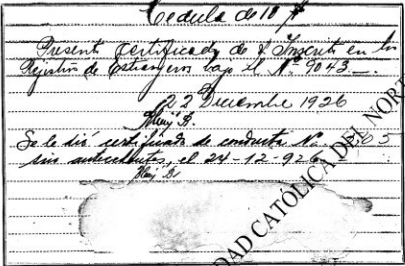 Cedula de 10 
Presentó Certificado de Inscrito en los
Registros de Estranjeros bajo el Nº 9043_.
22 Diciembre 1926
Se le dió certificado de conducta No.
sin antecedentes, el 24-12-926
DAD CATÓLICA DEL NORT